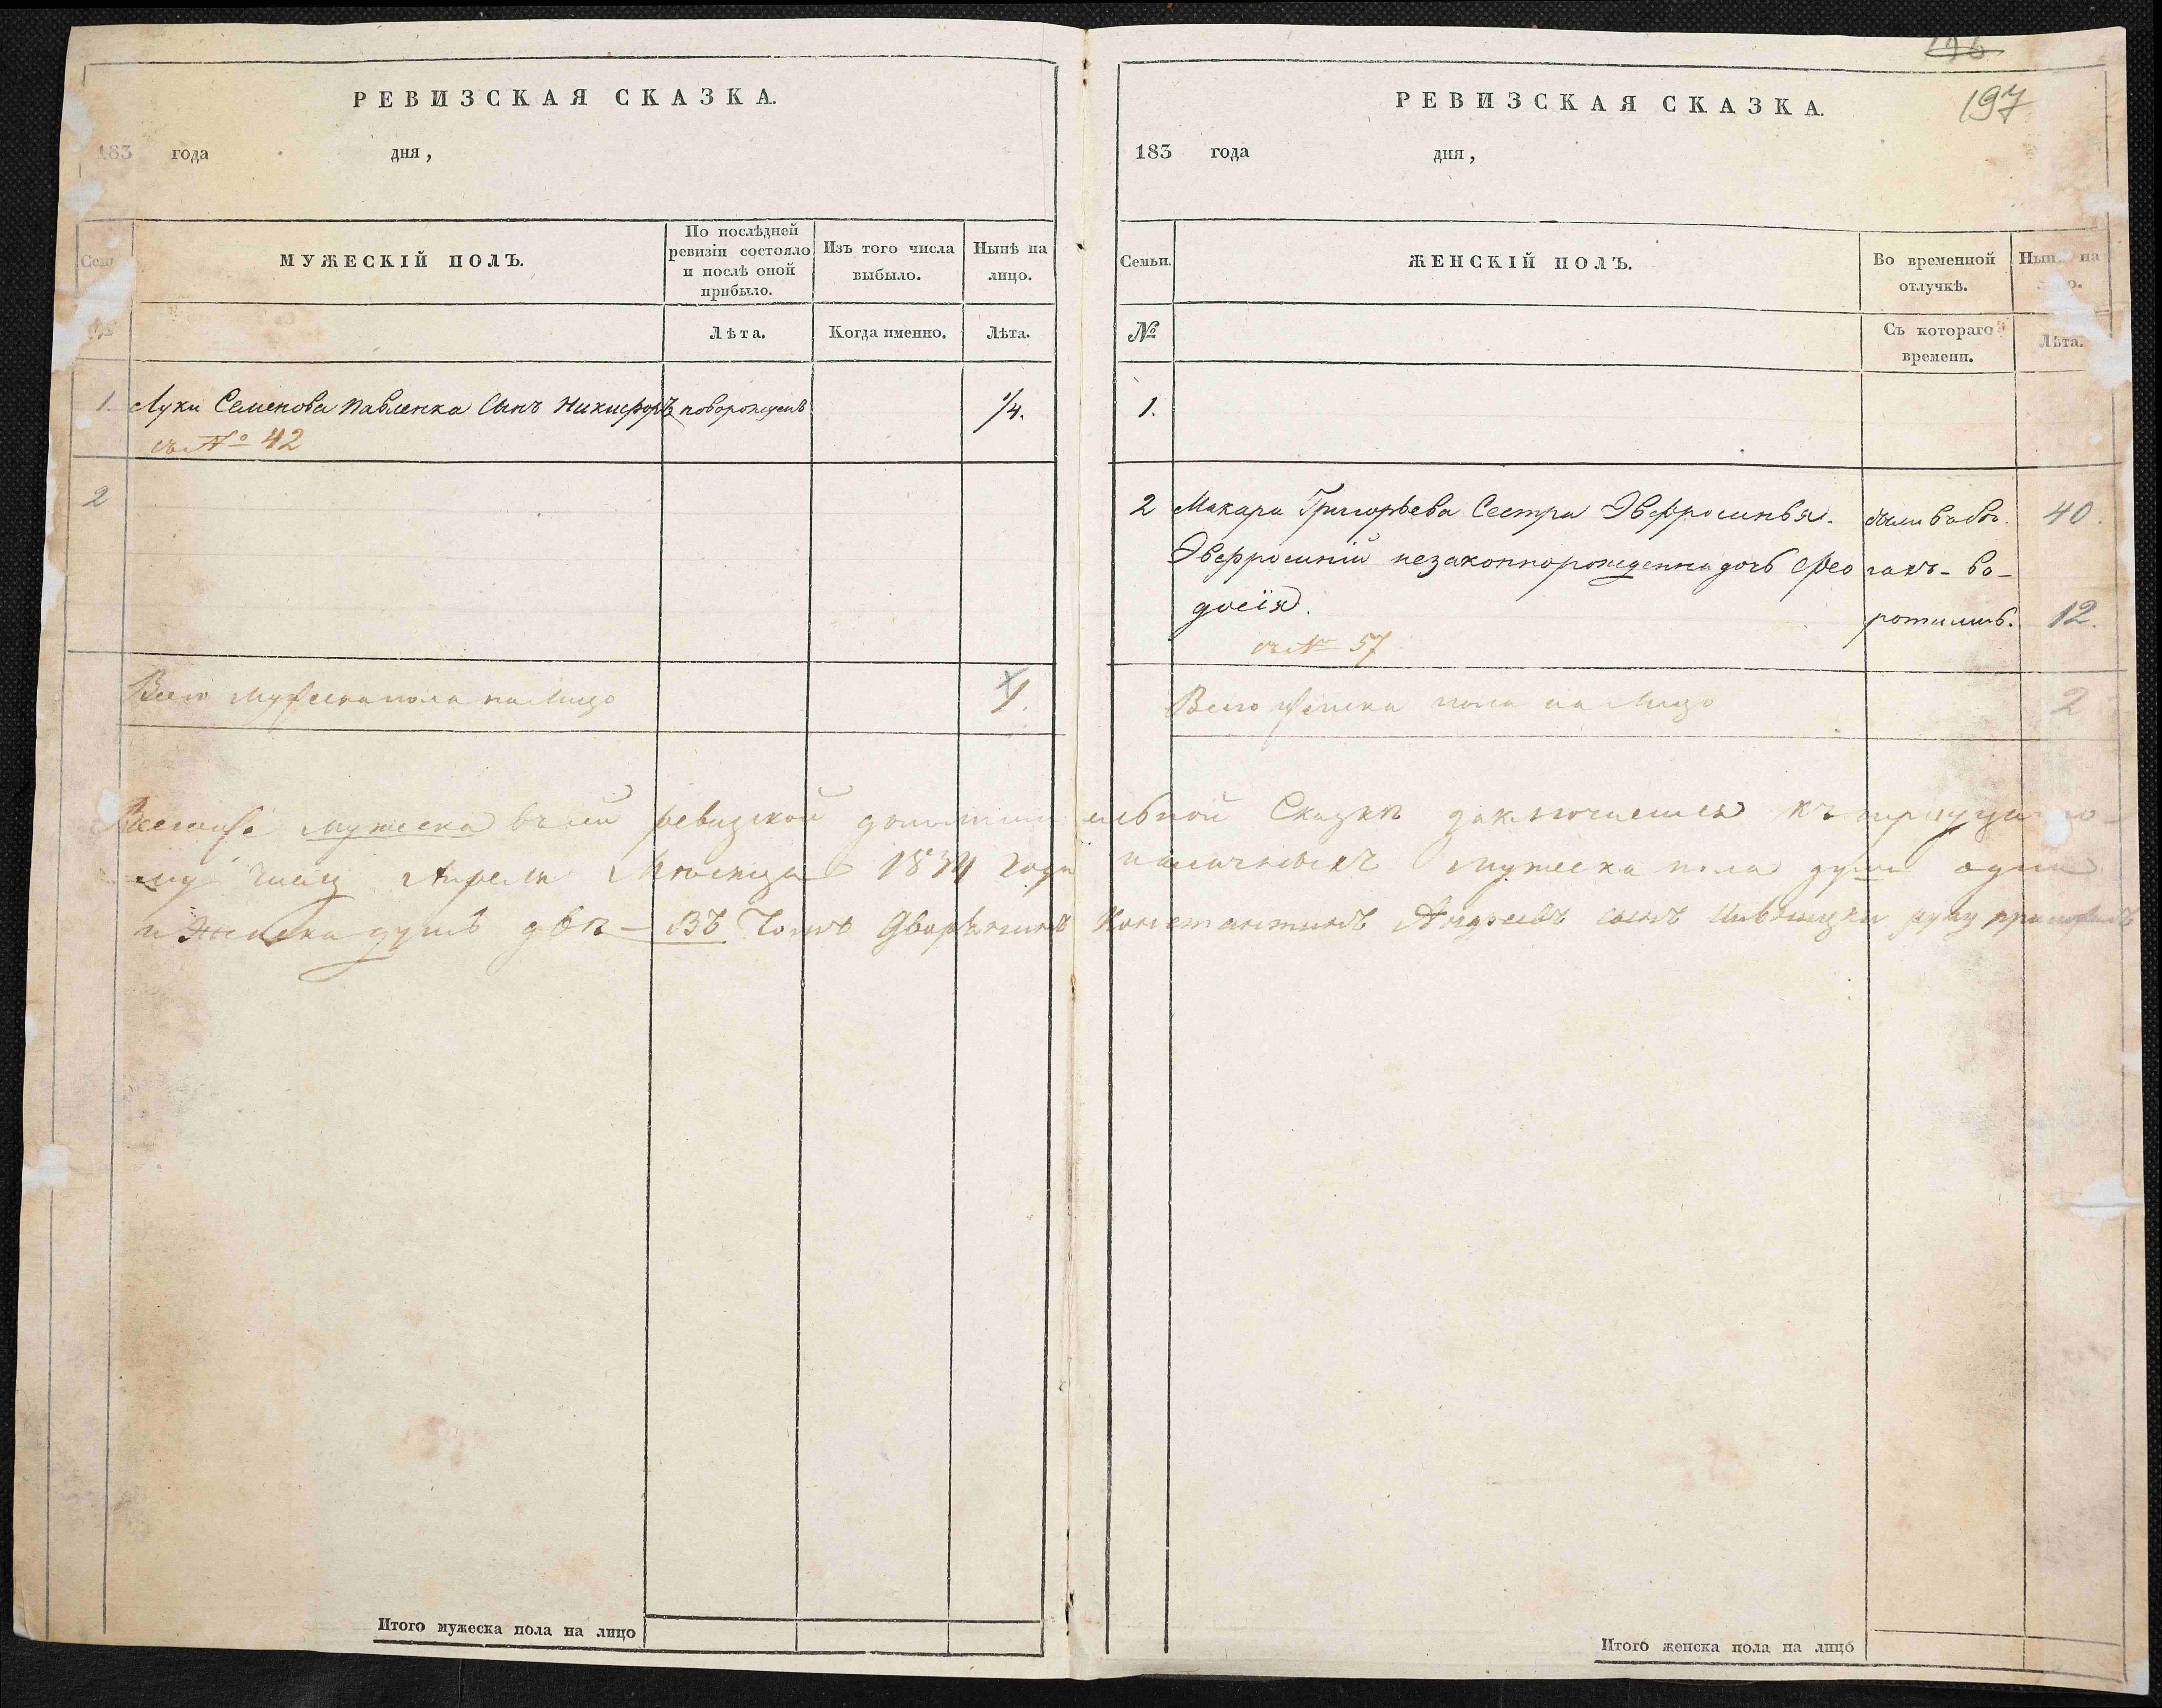 РЕВИЗСКАЯ СКАЗКА.
183 года дня,
МУЖЕСКІЙ ПОЛЪ.
По послѣдней
ревизіи состояло
и послѣ оной
прибыло.
Изъ того числа
выбыло.
Нынѣ на
лицо.
Лѣта.
Когда именно.
Лѣта.
1. Луки Семенова Павленка Сынъ Никифоръ новорожденъ 1/4.
съ № 42
2
Всего мужеска пола на лицо 1.
196
197
РЕВИЗСКАЯ СКАЗКА.
183 года дня,
Семьи.
ЖЕНСКІЙ ПОЛЪ.
Во временной
отлучкѣ.
Нын на
№
Съ котораго
времени.
Лѣта.
1.
2 Макара Григорьева Сестра Эвфросинья. 40.
Эвфросиніи незаконнорожденна дочь Фео во-
досія. ротилась. 12.
съ № 57
Всего женска пола на лицо 2
мужеска въ сей ревизкой Сказкѣ заключается къ
му числу Апреля Месяца 1834 года наличныхъ мужеска пола душа одна
и Женска душъ двѣ – Въ Томъ Дворянинъ Константинъ Андреевъ сынъ руку приложилъ
Итого мужеска пола на лицо
Итого женска пола на лицо